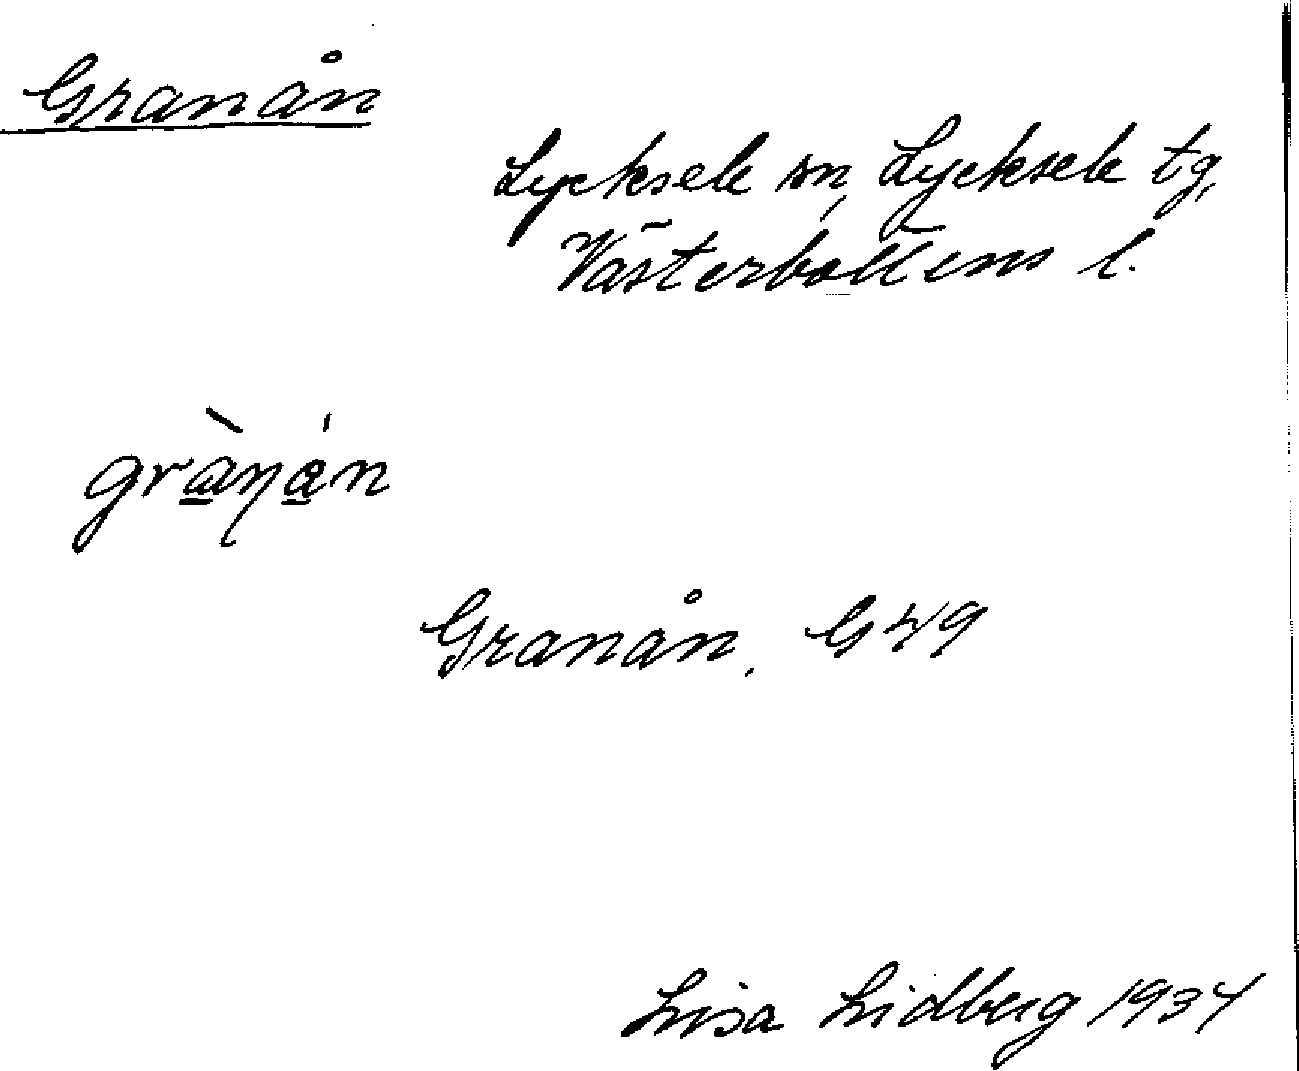 Granån
Lycksele sn, Lycksele tg,
Västerbottens l.
grànán
Granån. G 49
Lisa Lidberg 1934